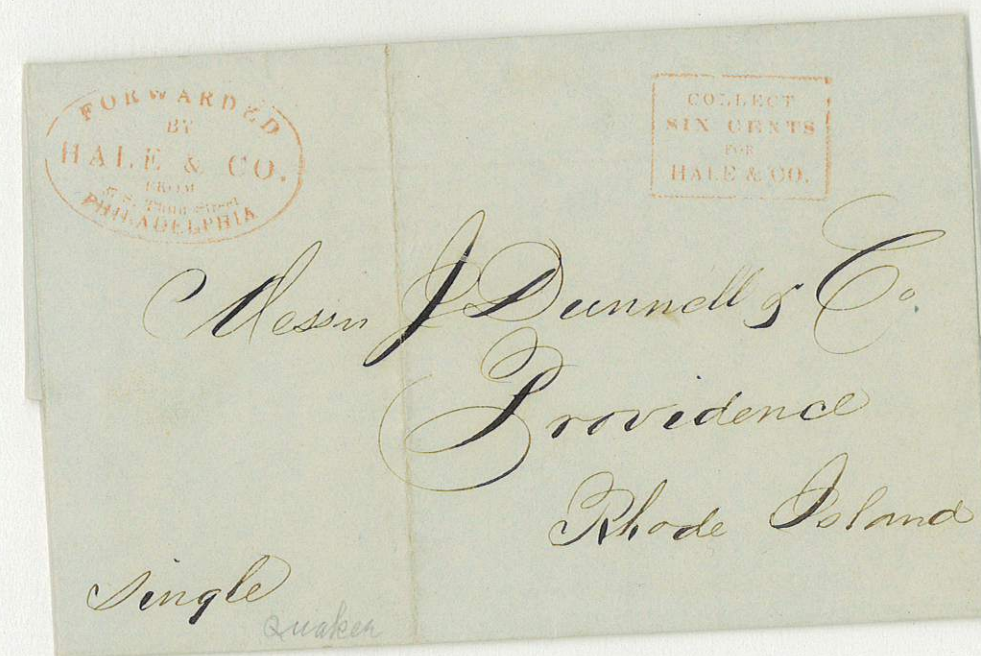 FORWARDED
BY
HALE & CO.
FROM
S. Third Street
PHILADELPHIA
COLLECT
SIX CENTS
FOR
HALE & CO.
Messrs J Dunnell & Co.
Providence
Rhode Island
single
Quaker